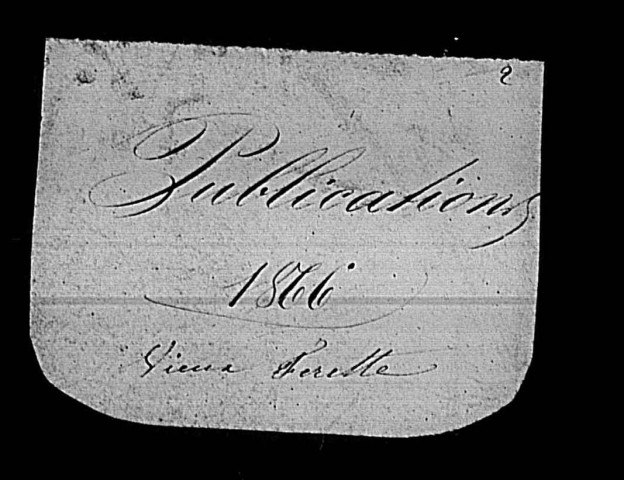 2
Publications
1866
Vieux Ferette